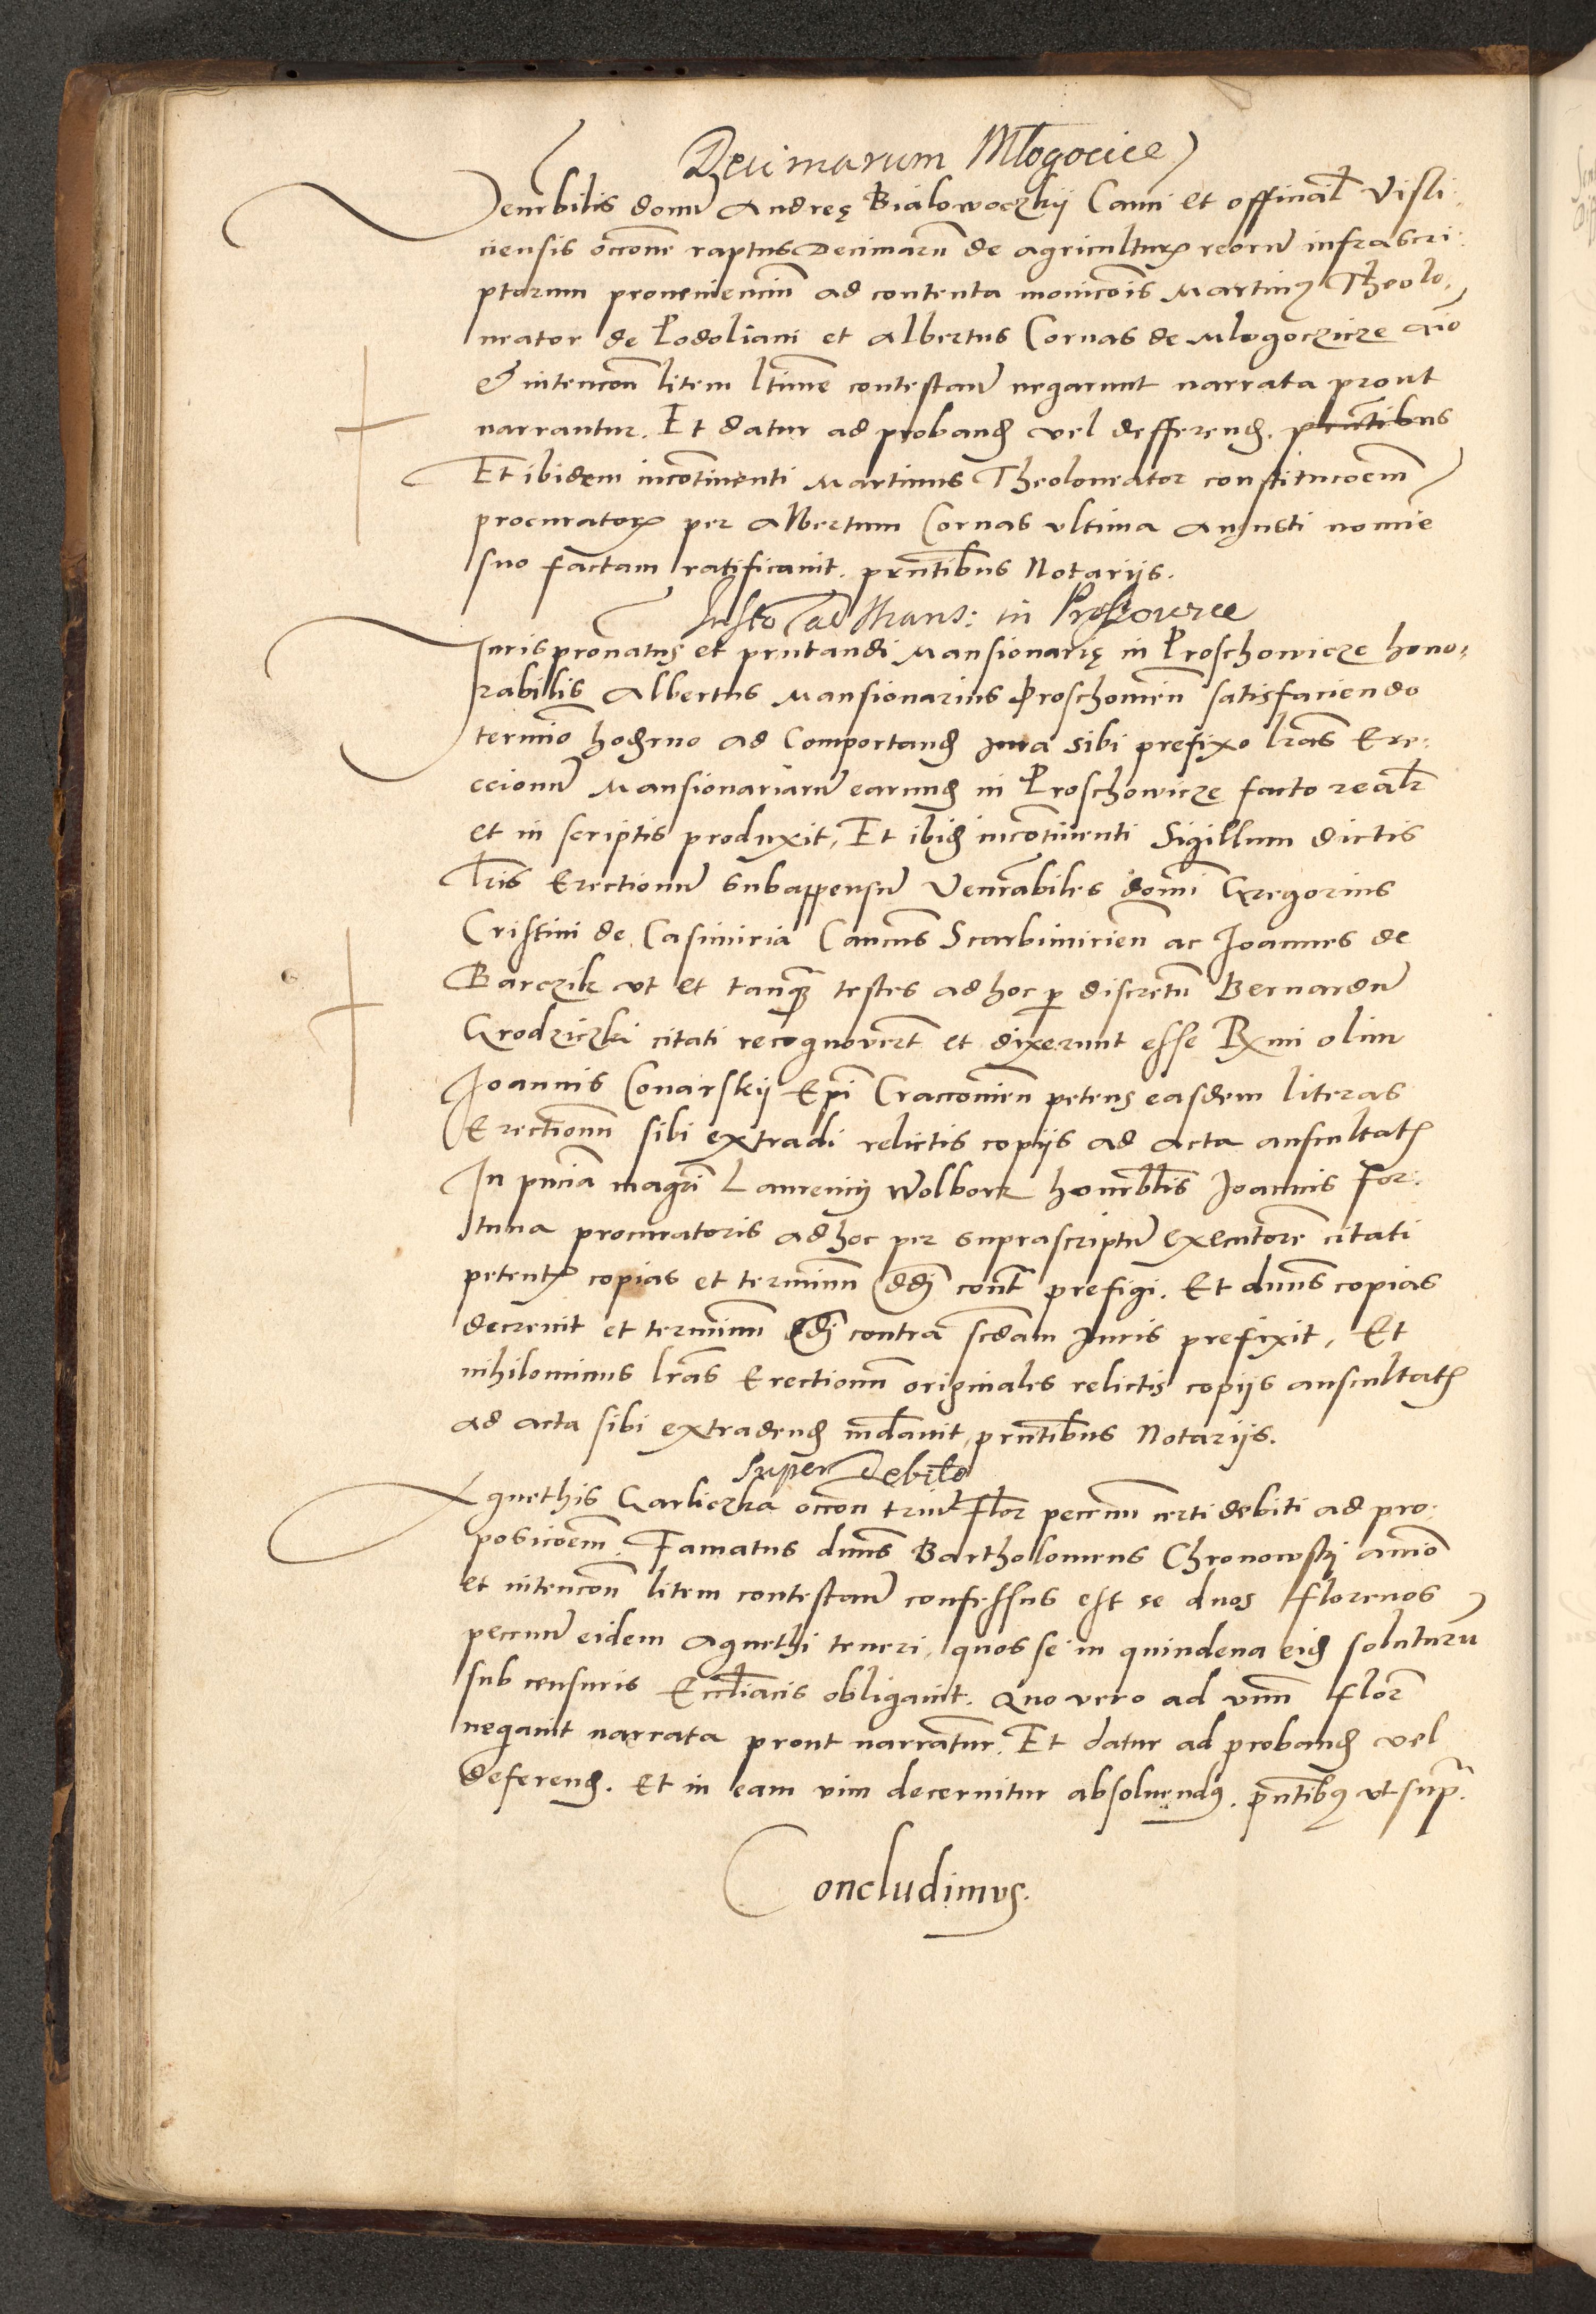 Decimarum Młogocice
Venrbilis domi Andreę Bialowoczkij Cani et officialis Visli:
ciensis occone raptus Decimaru de agriculturis reoru infrascri:
ptorum provenienciu ad contenta monicois Martinus Theolo,
neator de Podoliani et Albertus Cornas de Mlogoczicze aio
& intencon litem ltime contestan negarunt narrata prout
narrantur. Et datur ad proband vel defferend. prntibus
Et ibidem incotinenti Martinus Theoloneator constitucoem
procuratoris per Albertum Cornas ultima Augusti nomie
suo factam ratificavit. prntibus Notarijs.
ad Mans: in Proszovice
Jurispronatus et prntandi Mansionarię in Proschowicze hono,
rabilis Albertus Mansionarius Proschovien satisfaciendo
termio hoderno ad Comportand Jura sibi prefixo lras Ere:
ccionu Mansionariaru earund in Proschowicze facto realr
et in scriptis produxit, Et ibid incotinenti Sigillum dictis
lris Erectionu subappensu Venrabiles domi Gregorius
Cristini de Casimiria Canus Scarbimirien ac Joannes de
Barczik ut et tanq testes ad hoc p discretu Bernardu
Grodziczki citati recognovert et dixerunt esse Rxmi olim
Joannis Conarskij Epi Cracovien petens easdem literas
Erectionu sibi extradi relictis copijs ad acta auscultatis
In pncia magri Laurencij Wolbork honrblis Joannis For:
tuna procuratoris ad hoc per suprascriptu executore citati
petentis copias et terminu ddi cont prefigi. Et dnus copias
decrevit et terminu ddi contra scdam Juris prefixit, Et
nihilominus lras Erectionu originales relictis copijs auscultatis
ad acta sibi extradend mdavit, prntibus Notarijs.
Super Debito
Agnethis Garliczka occon triu flor pecunu certi debiti ad pro:
posicoem. Famatus dnus Bartholomeus Chronowskj animo
et intencon litem contestan confessus est se duos florenos
pecunu eidem Agnethi teneri, quos se in quindena eid soluturu
sub censuris Eccliacis obligavit. Quo vero ad unu flor
negavit narrata prout narratur. Et datur ad proband vel
deferend. Et in eam vim decernitur absolvendus. pntibus ut sup.
Concludimus.